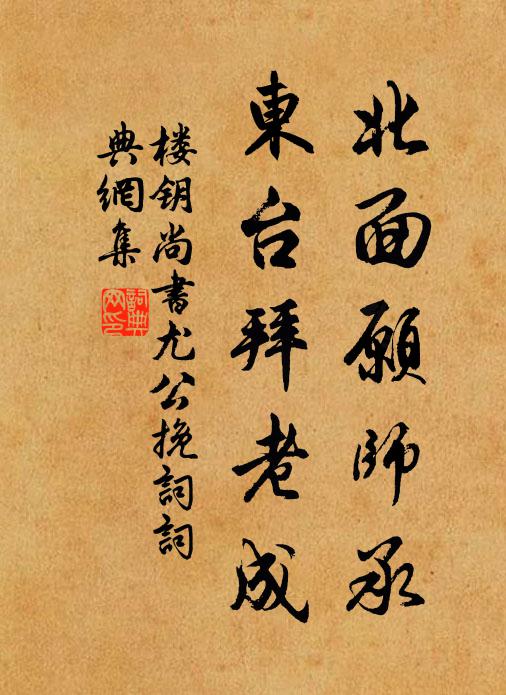 北面願師承
東台拜老成
楼钥尚書尤公挽詞詞
典網集
詞典網印